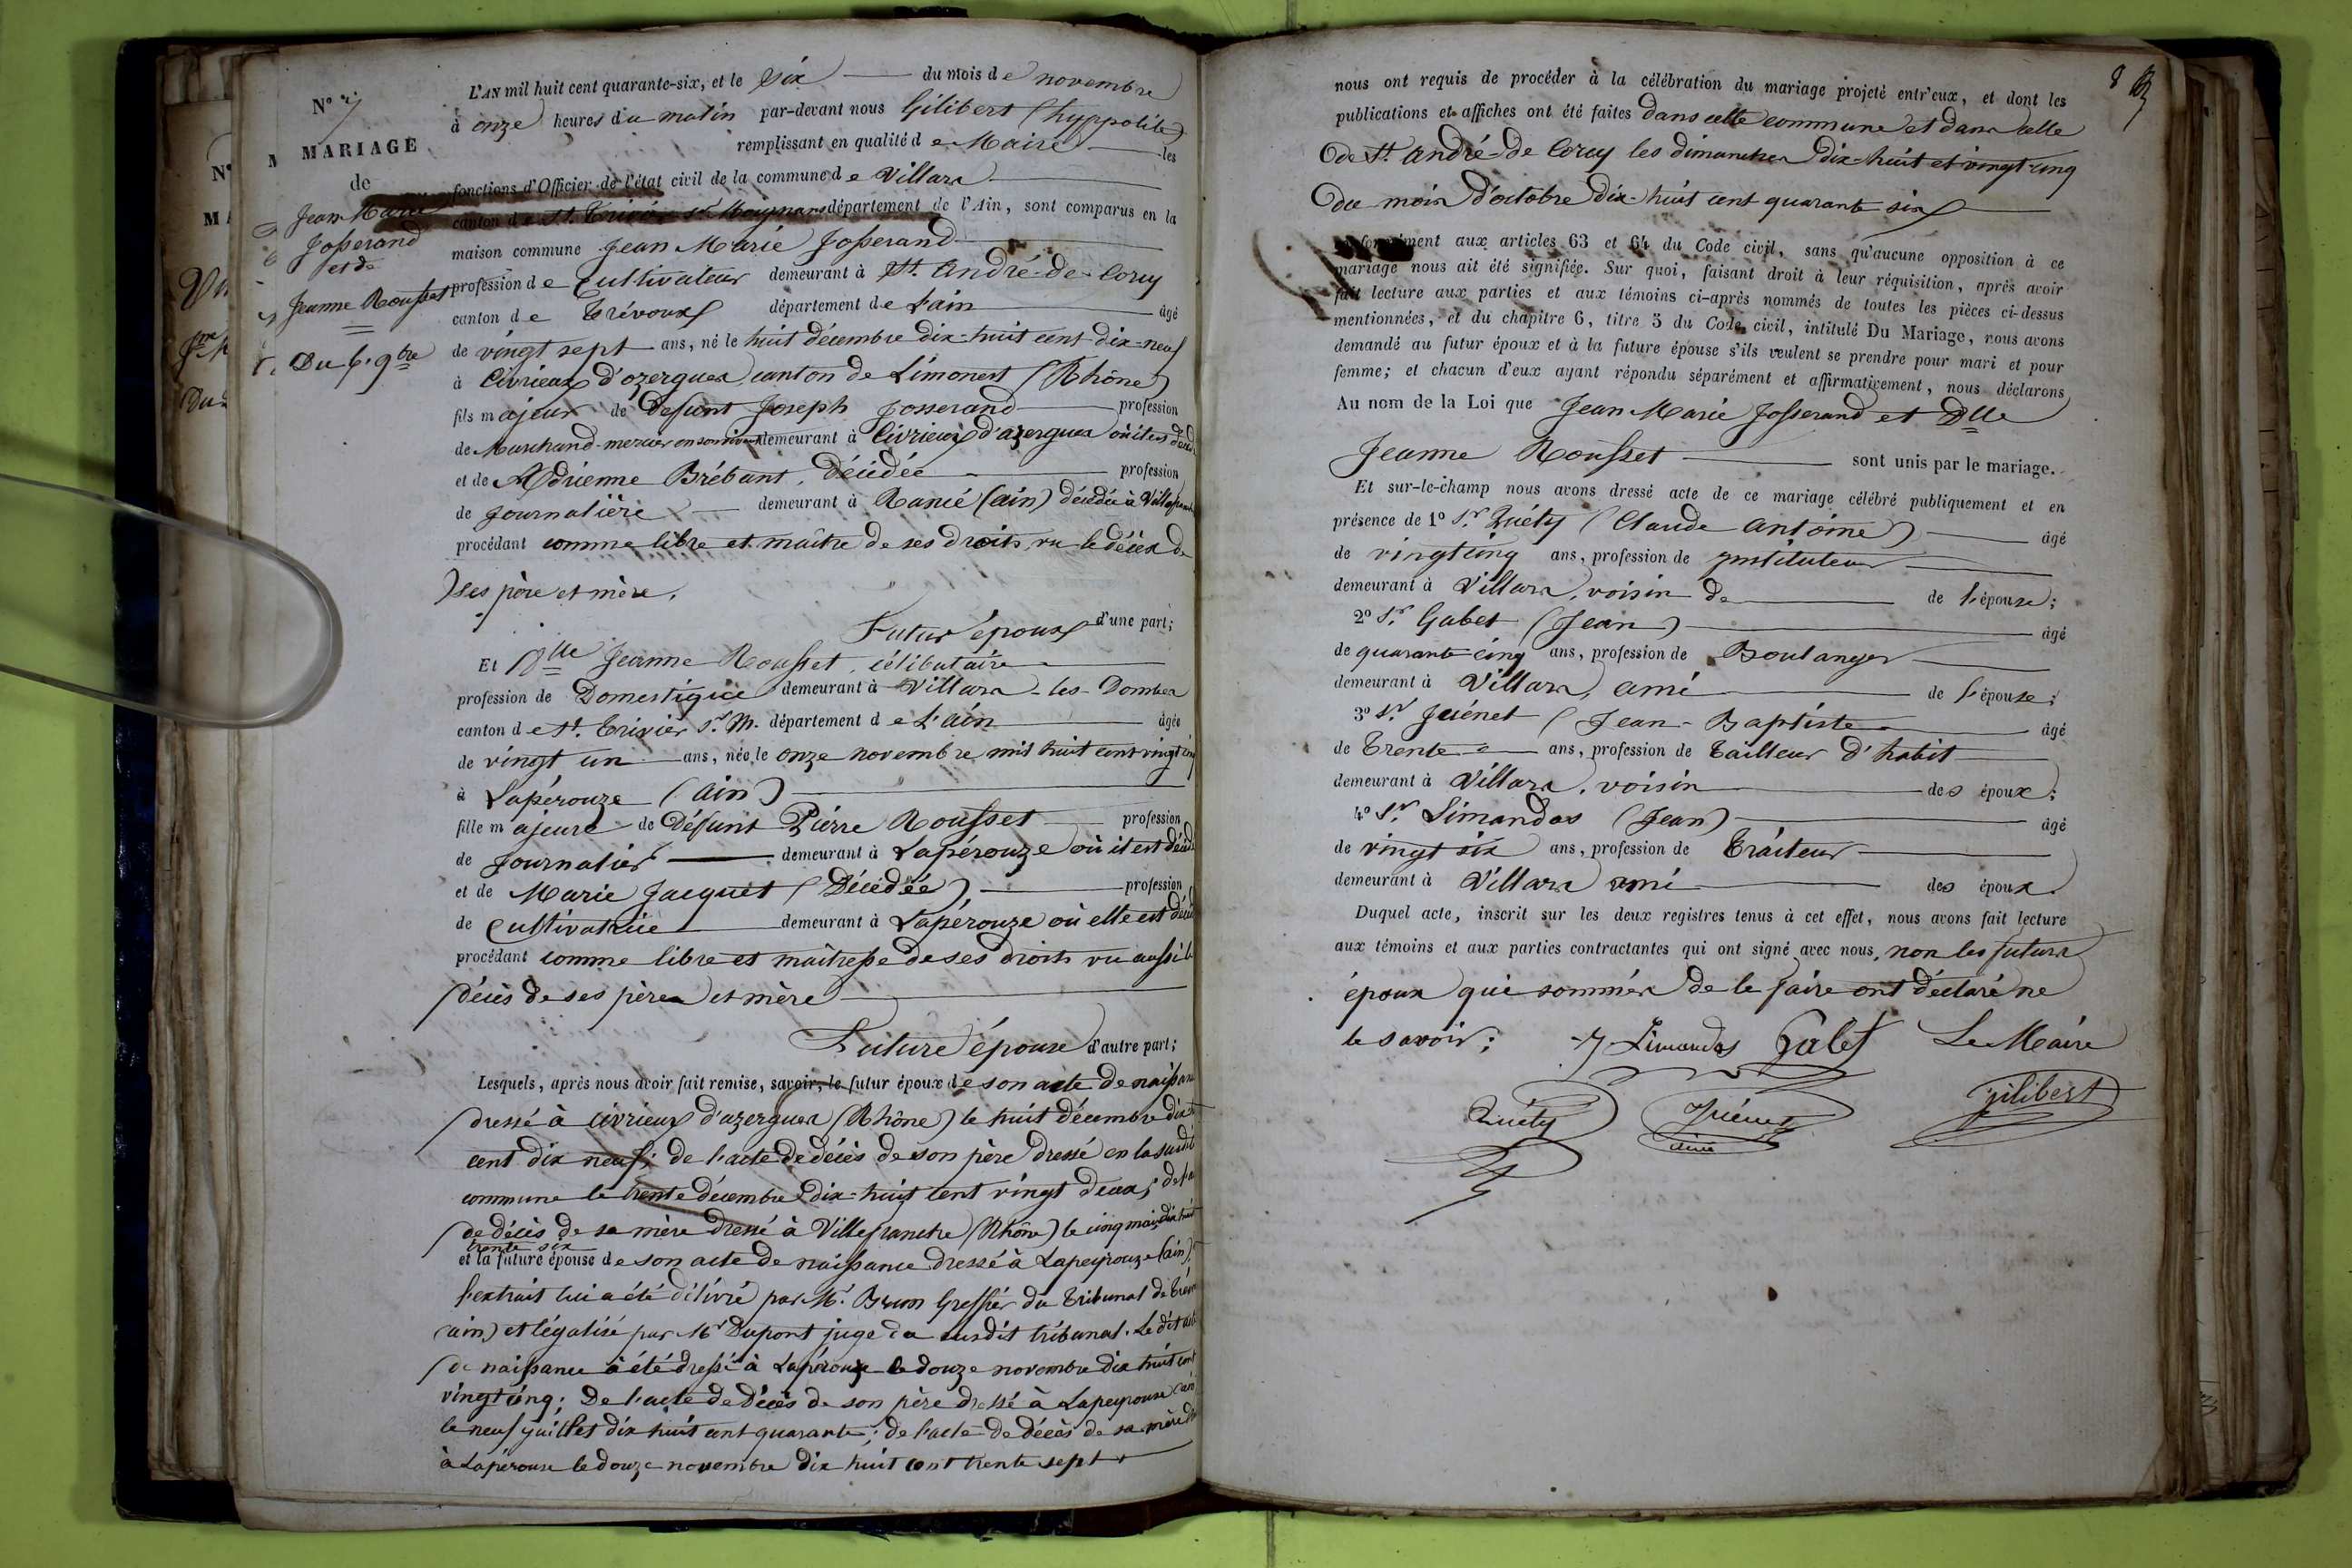 N° 7
MARIAGE
de
Jean Marie
Josserand
et de
Jeanne Rousset
Du 6. 9bre
L'AN mil huit cent quarante-six, et le six du mois de novembre
à onze heures du matin par-devant nous Gilibert (hyppolite)
remplissant en qualité de Maire les
fonctions d'Officier de l'état civil de la commune de Villars
canton de St. Trivier sr. Moignans département de l'Ain, sont comparus en la
maison commune Jean Marie Josserand
profession de Cultivateur demeurant à St. André-de-Corcy
canton de Trévoux département de L'ain âgé
de vingt sept ans, né le huit décembre dix-huit cent dix-neuf
à Civrieux d'ozergues, canton de Limonest (Rhône)
fils majeur de Defunt Joseph Josserand profession
de Marchand-mercier en son vivant demeurant à Civrieux d'azergues où il est décédé
et de Adrienne Brébant, Décédée profession
de Journalière demeurant à Rancé (ain) décédée à Villefranche
procédant comme libre et maître de ses droits, vu le décès de
ses père et mère.
Futur époux d'une part;
Et Dlle Jeanne Rousset, célibataire
profession de Domestique demeurant à Villars-les-Dombes
canton de St. Trivier Sr. M. département de L'ain âgée
de vingt un ans, née le onze novembre mil huit cent vingt cinq
à Lapérouze (ain)
fille majeure de Défunt Pierre Rousset profession
de Journalier demeurant à Lapérouze où il est décédé
et de Marie Jacquet (Décédée) profession
de Cultivatrice demeurant à Lapérouze où elle est décédée
procédant comme libre et maîtresse de ses droits vu aussi le
décès de ses pères et mère
Future épouse d'autre part;
Lesquels, après nous avoir fait remise, savoir, le futur époux de son acte de naissance
dressé à Civrieux d'azergues (Rhône) le huit décembre dix huit
cent dix neuf; de l'acte de décès de son père dressé en la susdite
commune le trente décembre dix-huit cent vingt deux; de l'acte
de décès de sa mère dressé à Villefranche (Rhône) le cinq mai dix huit
trente six
et la future épouse de son acte de naissance dressé à Lapeyrouze (ain),
l'extrait lui a été délivré par Mr. Brun Greffier du Tribunal de Trévoux
(ain) et légalisé par Mr Dupont juge du susdit tribunal. Le dit acte
de naissance a été dressé à Lapérouze le douze novembre dix huit cent
vingt cinq; De l'acte de décès de son père dressé à Lapeyrouse (ain)
le neuf juillet dix huit cent quarante; de l'acte de décès de sa mère
à Lapérouse le douze novembre dix huit cent trente sept
8
nous ont requis de procéder à la célébration du mariage projeté entr'eux, et dont les
publications et affiches ont été faites dans cette commune et dans celle
de St. André-de Corcy les dimanches dix-huit et vingt-cinq
du mois d'octobre dix-huit cent quarante six
conformément aux articles 63 et 64 du Code civil, sans qu'aucune opposition à ce
mariage nous ait été signifiée. Sur quoi, faisant droit à leur réquisition, après avoir
fait lecture aux parties et aux témoins ci-après nommés de toutes les pièces ci-dessus
mentionnées, et du chapitre 6, titre 5 du Code civil, intitulé Du Mariage, nous avons
demandé au futur époux et à la future épouse s'ils veulent se prendre pour mari et pour
femme; et chacun d'eux ayant répondu séparément et affirmativement, nous déclarons
Au nom de la Loi que Jean Marie Josserand et Dlle
Jeanne Rousset sont unis par le mariage.
Et sur-le-champ nous avons dressé acte de ce mariage célébré publiquement et en
présence de 1° Sr. Quéty (Claude antoine) âgé
de vingt cinq ans, profession de Instituteur
demeurant à Villars, voisin de de l'épouse;
2° Sr. Gabet (Jean) âgé
de quarante cinq ans, profession de Boulanger
demeurant à Villars, ami de l'épouse;
3° Sr. Juénet (Jean-Baptiste âgé
de Trente ans, profession de tailleur d'habit
demeurant à Villars, voisin des époux;
4° Sr. Limandas (Jean) âgé
de vingt six ans, profession de Traiteur
demeurant à Villars ami des époux.
Duquel acte, inscrit sur les deux registres tenus à cet effet, nous avons fait lecture
aux témoins et aux parties contractantes qui ont signé avec nous, non les futurs
époux qui sommés de le faire ont déclaré ne
le savoir; J. Limandas Gabet Le Maire
Quéty Juénet gilibert
ainé